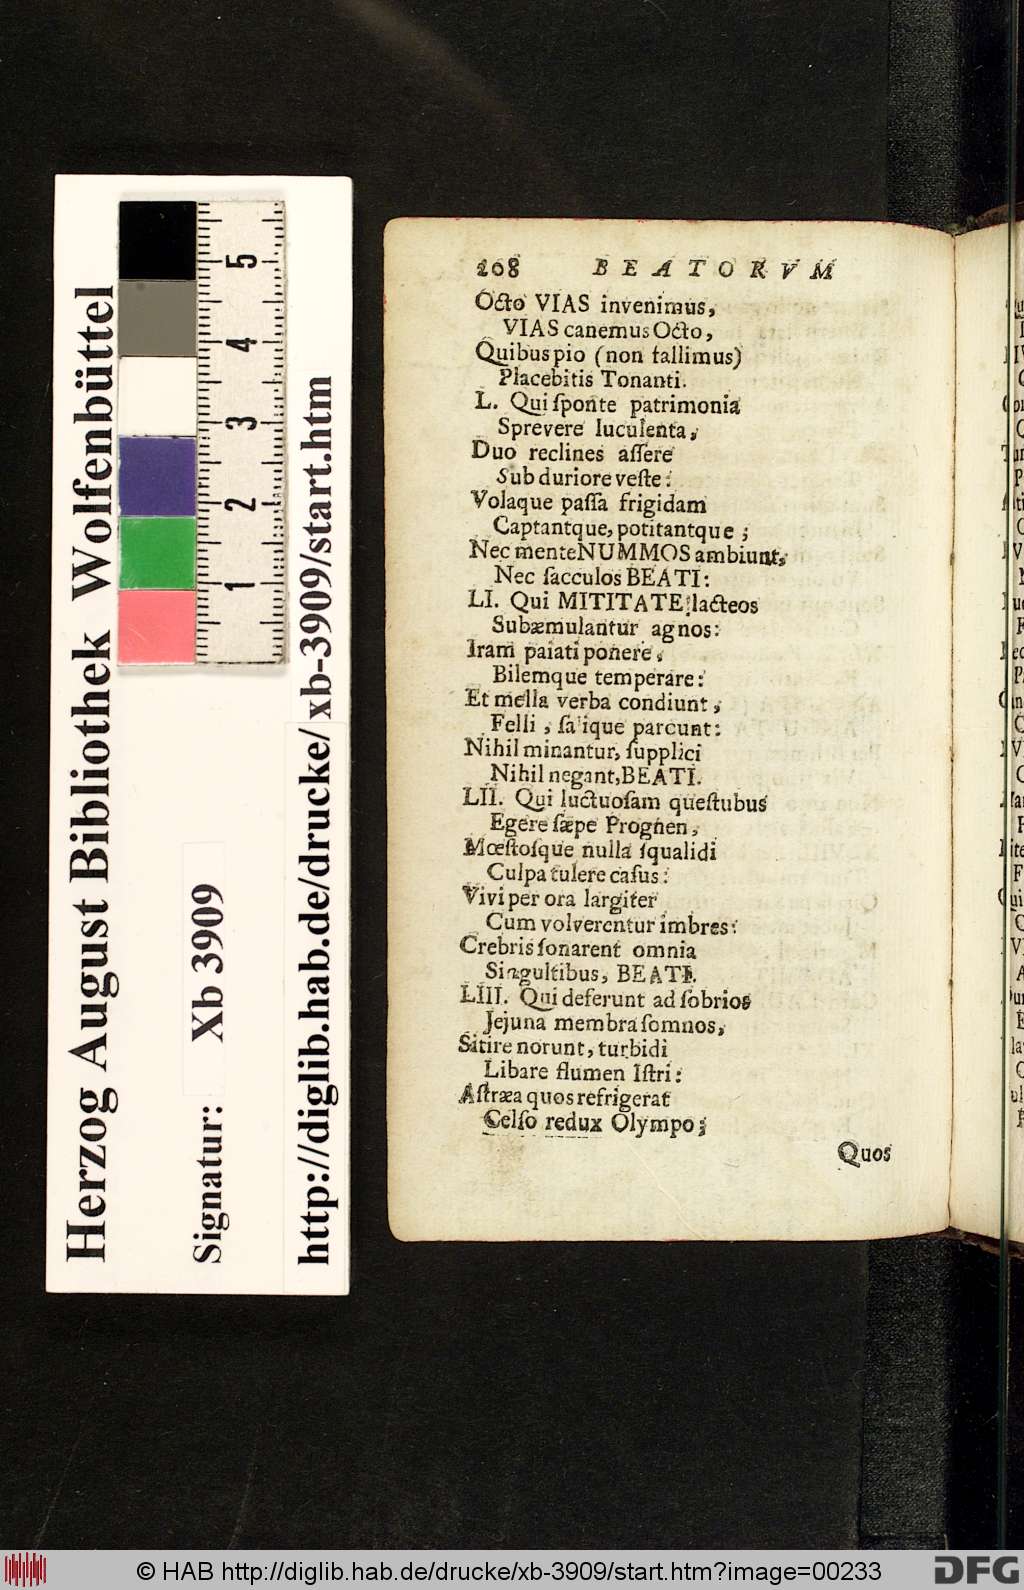 Herzog August Bibliothek Wolfenbüttel
Signatur: Xb 3909
http://diglib.hab.de/drucke/xb-3909/start.htm
5
4
3
2
1
208 BEATORVM
Octo VIAS invenimus,
VIAS canemus Octo,
Quibus pio (non fallimus)
Placebitis Tonanti.
L. Qui ſponte patrimonia
Sprevere luculenta,
Duo reclines aſſere
Sub duriore veſte:
Volaque paſſa frigidam
Captantque, potitantque;
Nec mente NUMMOS ambiunt,
Nec ſacculos BEATI:
LI. Qui MITITATE lacteos
Subæmulantur agnos:
Iram paiati ponere,
Bilemque temperare:
Et mella verba condiunt,
Felli, ſa'ique parcunt:
Nihil minantur, ſupplici
Nihil negant, BEATI.
LII. Qui luctuoſam queſtubus
Egere ſæpe Prognen,
Mœſtoſque nulla ſqualidi
Culpa tulere caſus:
Vivi per ora largiter
Cum volverentur imbres:
Crebris ſonarent omnia
Singultibus, BEATI.
LIII. Qui deferunt ad ſobrios
Jejuna membra ſomnos,
Sitire norunt, turbidi
Libare flumen Iſtri:
Aſtræa quos refrigerat
Celſo redux Olympo;
Quos
© HAB http://diglib.hab.de/drucke/xb-3909/start.htm?image=00233
DFG